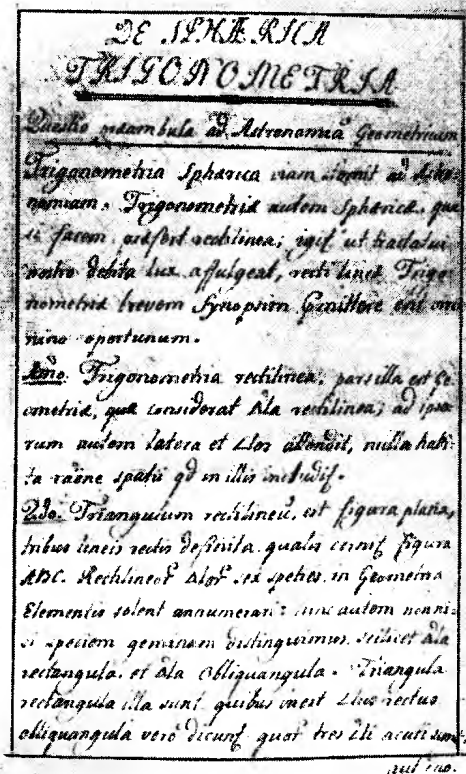 DE SPHÆRICA
TRIGONOMETRIA
Questio preambula ad Astronomiã Geometricam
Trigonometria Spharica viam sternit ad Astro-
nomiam. Trigonometria autem Spharica, qua
si facem, præfert rectilinea; igiť ut tractatui
nostro debita lux affulgeat, rectilinea Trigo-
nometria brevem Synopsim præmittere erit om
nino opertunum.
1mo. Trigonometria rectilinea, pars illa est Ge-
ometriæ, quæ considerat Δla rectilinea; ad ipso
rum autem latera et ∠los attendit, nulla habi-
ta raõne spatii qd in illis includiť.
2do. Triangulum rectilineũ, est figura plana,
tribus lineis rectis definita qualis cerniť figura
ABC. Rectilineoř Δloř sex species in Geometria
Elementis solent annumerari: nunc autem nonni-
si speciem geminam distinguimus scilicet Δla
rectangula, et Δla obliquangula. Triangula
rectangula illa sunt quibus inest ∠lus rectus
obliquangula vero dicunť quoř tres ∠li acuti sunt,
aut uno.